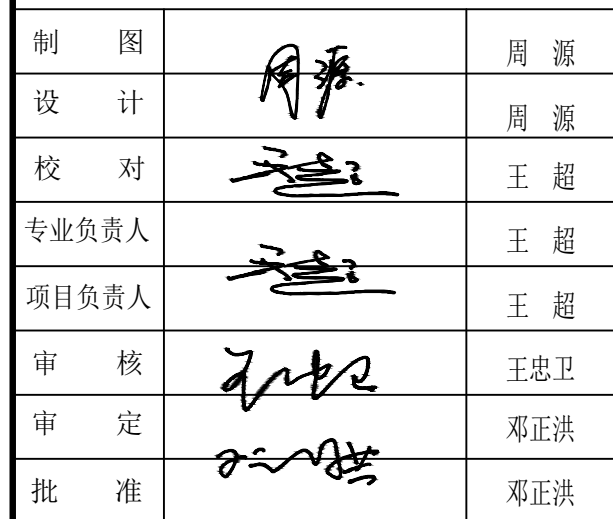 制 图 周源 周 源
设 计 周 源
校 对 王超 王 超
专业负责人 王 超
项目负责人 王超 王 超
审 核 王忠卫 王忠卫
审 定 邓正洪
批 准 邓正洪 邓正洪